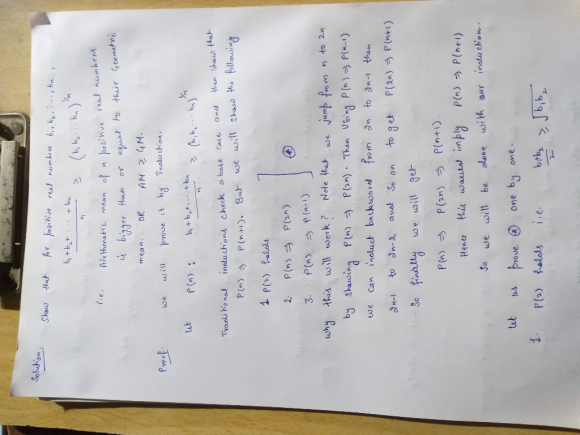 Solution: Show that for positive real numbers b₁, b₂, ..., bₙ,
(b₁+b₂+...+bₙ)/n ≥ (b₁b₂...bₙ)^(1/n)
i.e. Arithmetic mean of n positive real numbers
is bigger than or equal to their Geometric
mean. OR AM ≥ GM.
Proof: We will prove it by Induction.
Let P(n): (b₁+b₂+...+bₙ)/n ≥ (b₁b₂...bₙ)^(1/n)
Traditional inductions check a base case and then show that
P(n) ⇒ P(n+1). But we will show the following
1. P(2) holds
2. P(n) ⇒ P(2n) ] ⊛
3. P(n) ⇒ P(n-1)
Why this will work? Note that we jump from n to 2n
by showing P(n) ⇒ P(2n). Then Using P(n) ⇒ P(n-1)
we can induct backward from 2n to 2n-1 then
2n-1 to 2n-2 and so on to get P(2n) ⇒ P(n+1)
So finally we will get
P(n) ⇒ P(2n) ⇒ P(n+1)
Hence this would imply P(n) ⇒ P(n+1)
So we will be done with our induction.
Let us prove ⊛ one by one.
1. P(2) holds i.e. (b₁+b₂)/2 ≥ √(b₁b₂)